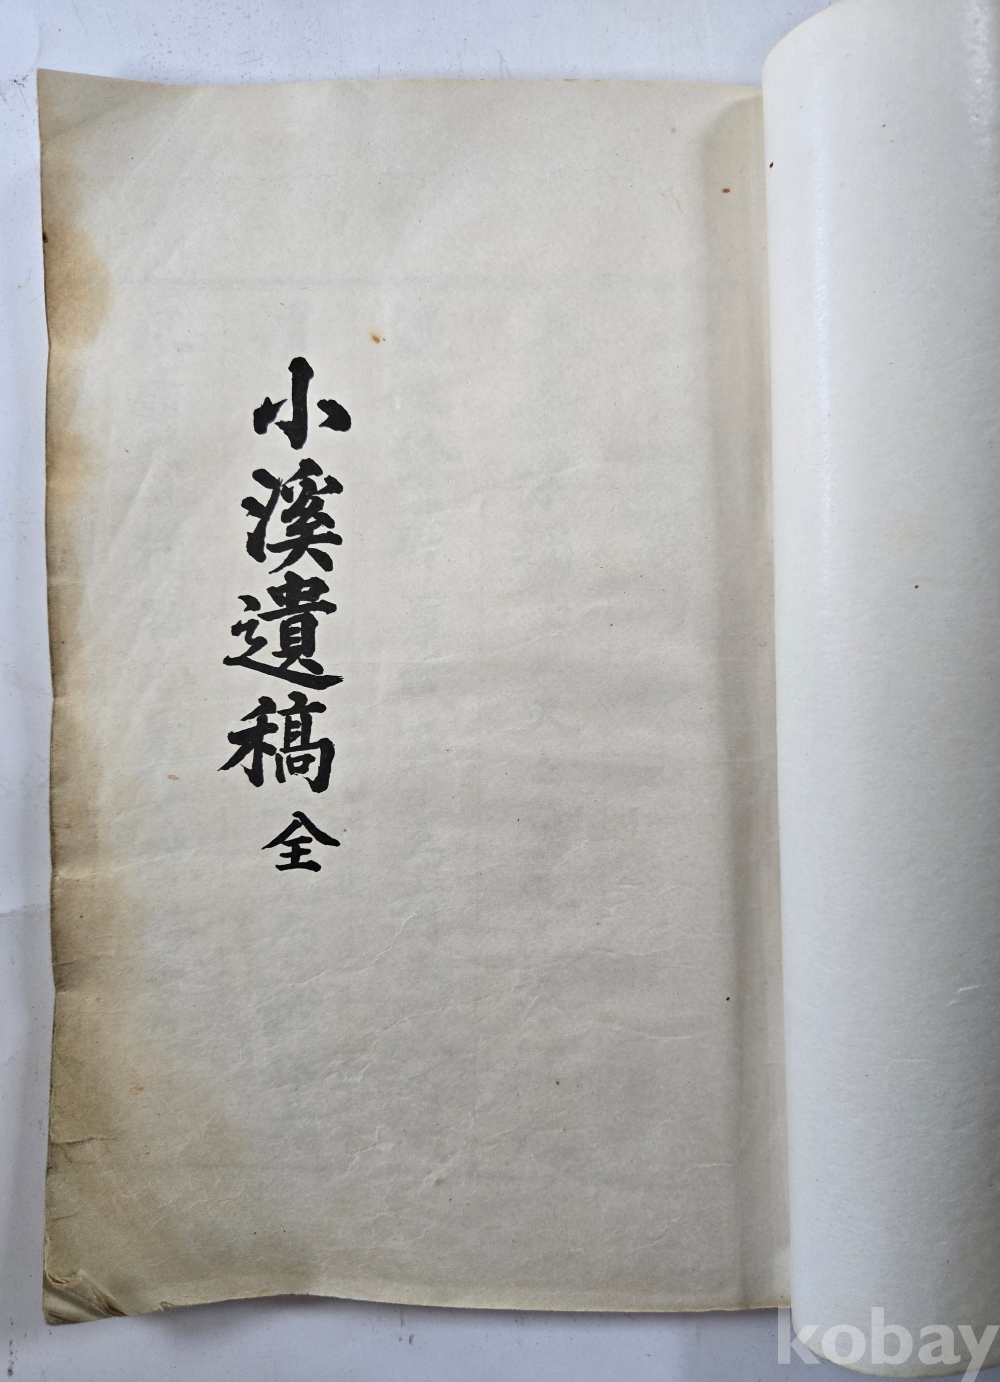 小溪遺稿 全
kobay